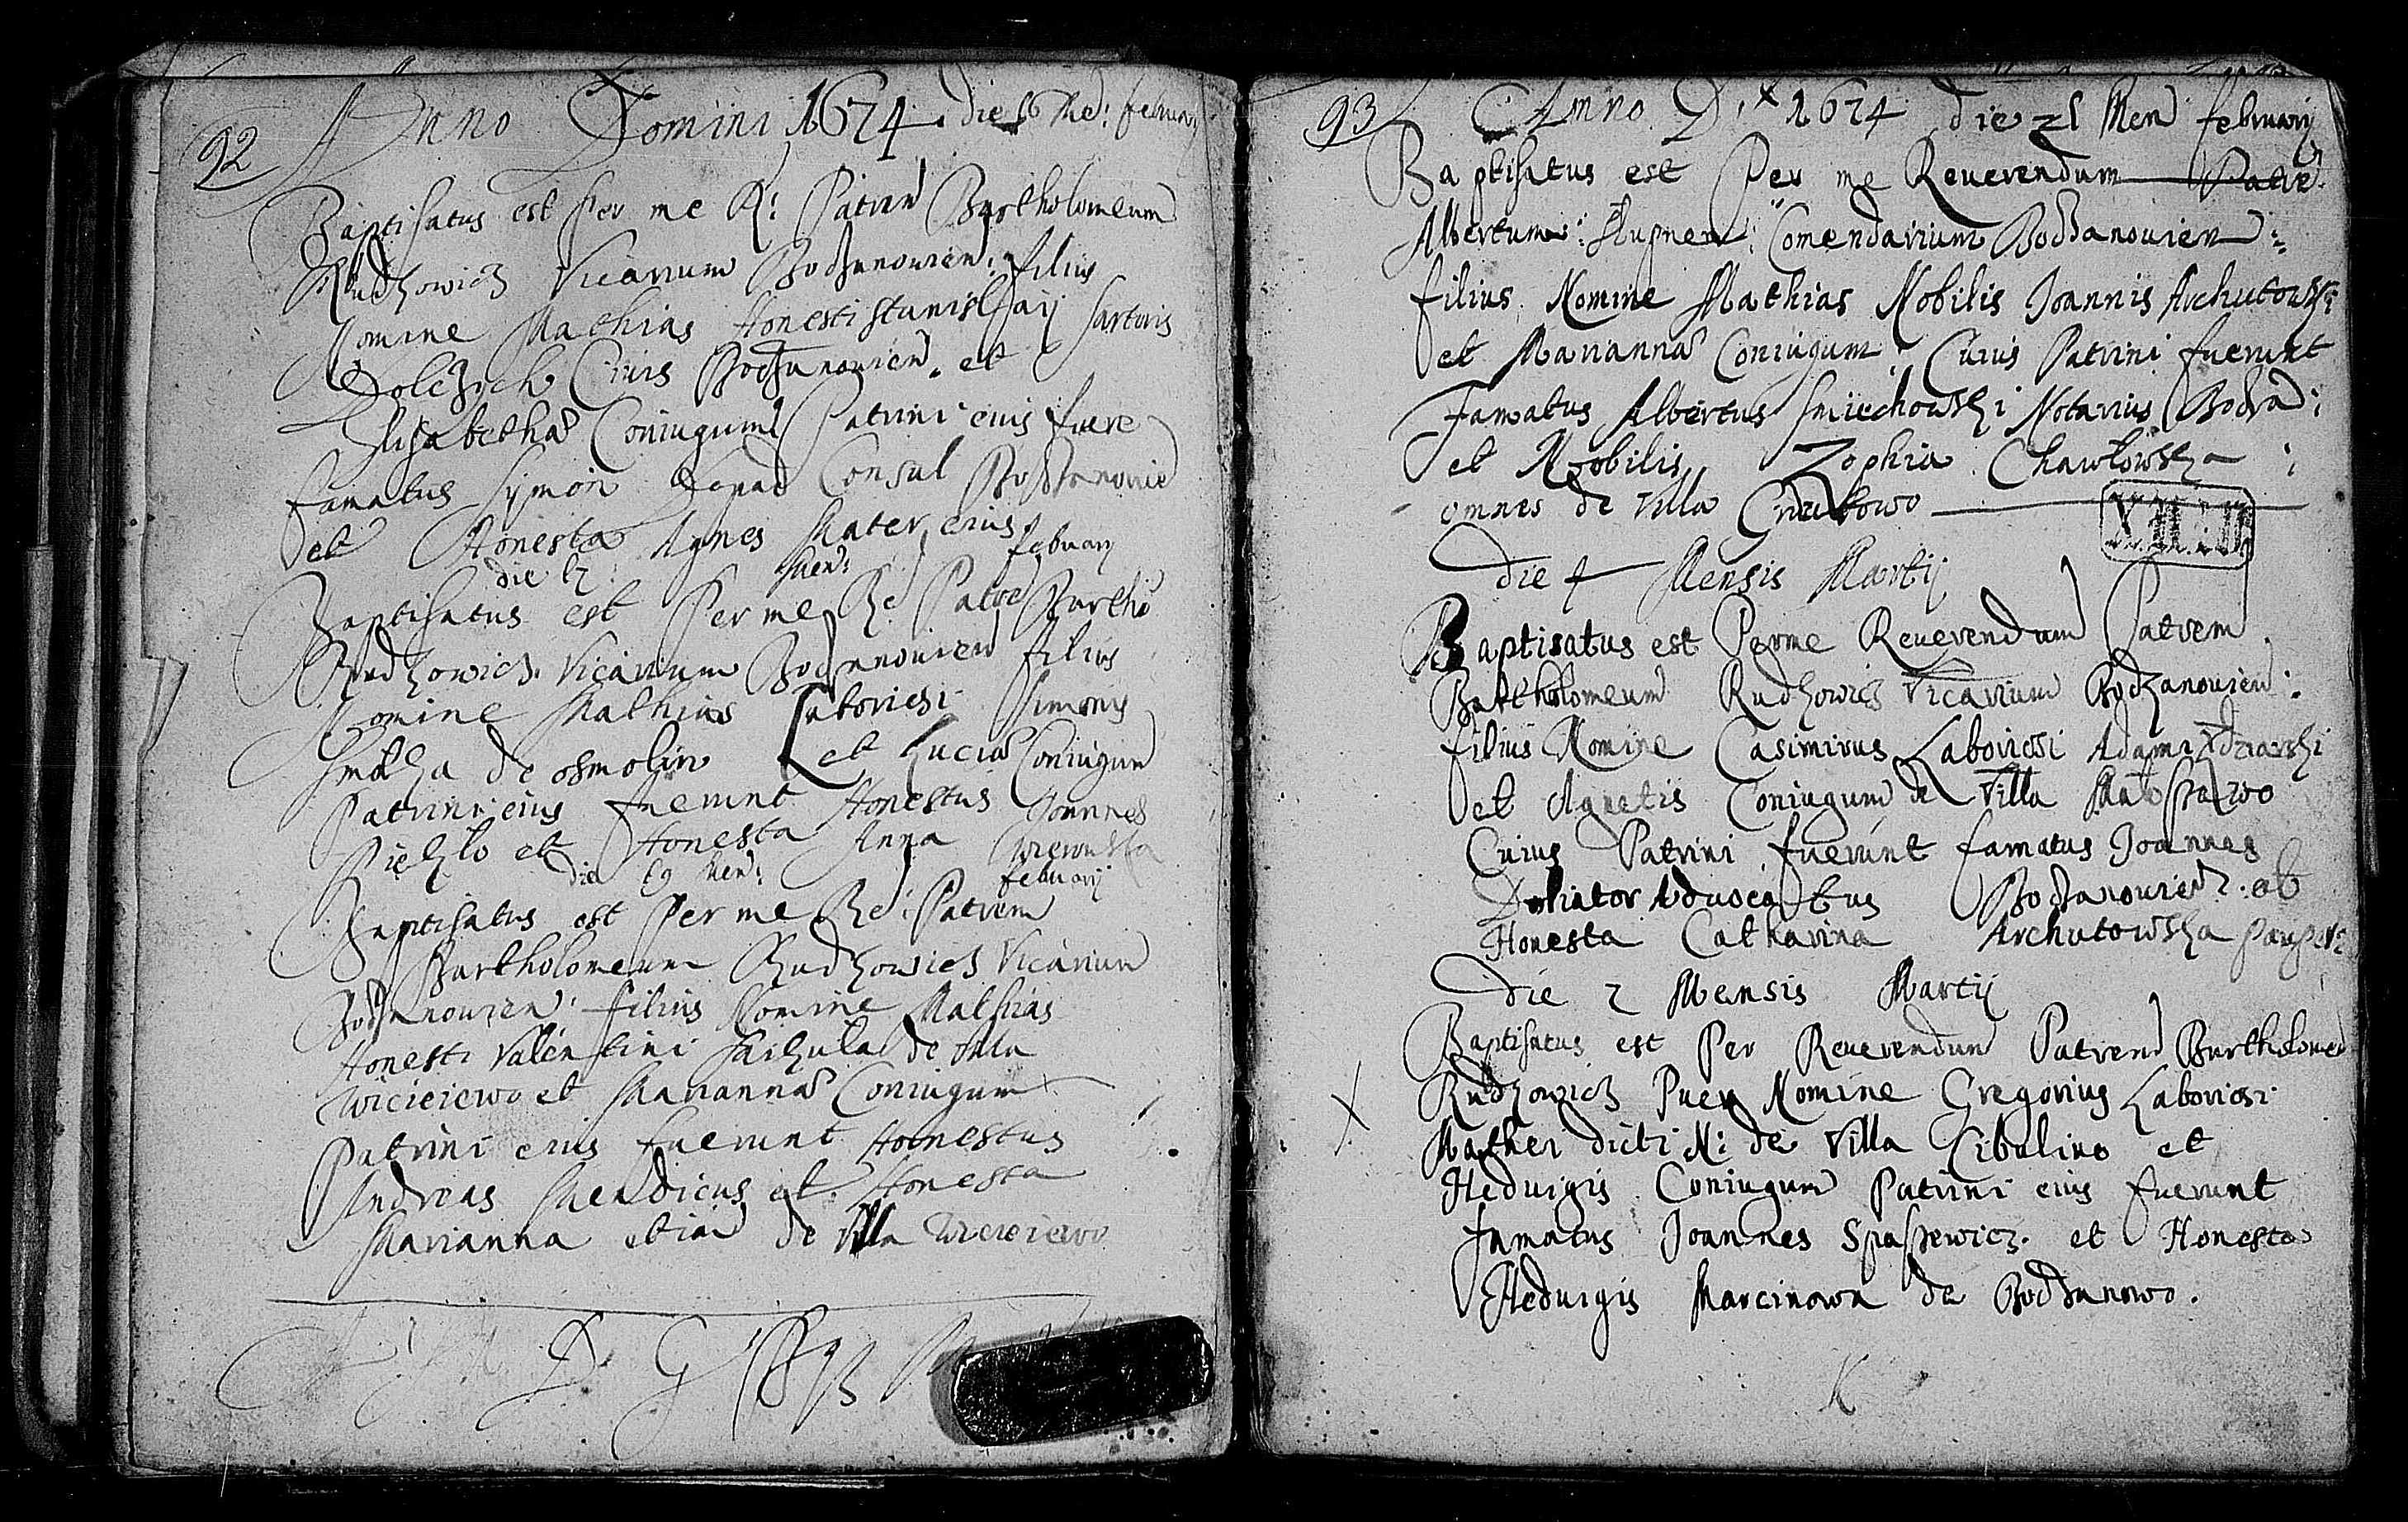 92 Anno Domini 1674. die 16 Me: februarij
Baptisatus est per me R: Patrem Bartholomeum
Rudzowicz Vicarium Bodzanovien: filius
Nomine Mathias Honesti Stanislai sartoris
Civis Bodzanovien. et
Elisabetha Coniugum Patrini eius fuere
famatus Symon Consul Bodzanovien
et Honesta Agnes Mater eius
die Men: februarij
Baptisatus est Per me Re Patre Bartho
Rudzowicz. Vicarium Bodzanovien filius
Nomine Mathias Laboriosi Simonis
de osmolin et Lucia Coniugum
Patrini eius fuerunt Honestus Joannes
et Honesta Anna
die 19 Men: februarij
Baptisatus est Per me Re: Patrem
Bartholomeum Rudzowicz Vicarium
Bodzanovien: filius Nomine Mathias
Honesti Valentini de villa
Wicieiewo et Marianna Coniugum
Patrini eius fuerunt Honestus
Andreas Mendicus et Honesta
Marianna etia de villa Wicieiewo
93 Anno D. 1674 die 21 Men februarij
Baptisatus est Per me Reverendum Patre
Albertum Comendarium Bodzanovien:
filius Nomine Mathias Nobilis Joannis Archutowski
et Marianna Coniugum: Cuius Patrini fuerunt
Famatus Albertus Smiechowski Notarius Bodza:
et Nobilis Zophia Chawłowska
omnes de Villa
die 4 Mensis Martij
Baptisatus est Per me Reverendum Patrem
Bartholomeum Rudzowicz Vicarium Bodzanovien:
filius Nomine Casimirus Laboriosi Adami
et Agnetis Coniugum de Villa
Cuius Patrini fuerunt famatus Joannes
Doliator Advocatus Bodzanovien. et
Honesta Catharina Archutowska
die 2 Mensis Martij
Baptisatus est Per Reverendum Patrem Bartholomeu
Rudzowicz Puer Nomine Gregorius Laboriosi
Mathei dicti N: de Villa Cibulino et
Heduigis Coniugum Patrini eius fuerunt
famatus Joannes Spaszewicz. et Honesta
Heduigis Marcinowa de Bodzanowo.